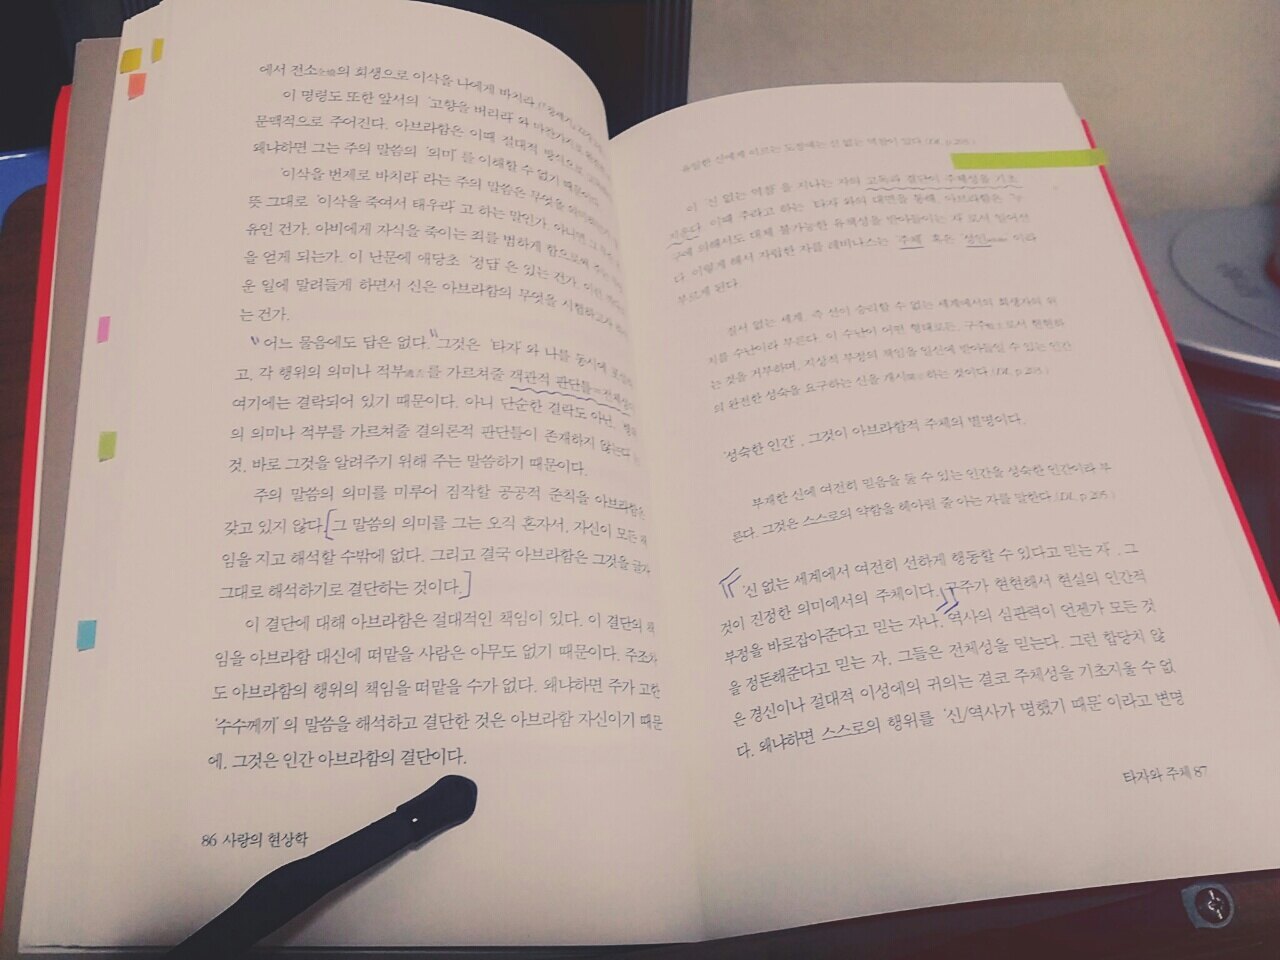 에서 전소의 희생으로 이삭을 나에게 바치라
이 명령도 또한 앞서의 '고향을 버리라'와 마찬가지로
문맥적으로 주어진다. 아브라함은 이때 절대적 방식으로
왜냐하면 그는 주의 말씀의 '의미'를 이해할 수 없기 때문이다.
'이삭을 번제로 바치라'라는 주의 말씀은 무엇을
뜻 그대로 '이삭을 죽여서 태우라'고 하는 말인가. 아니면 그
유인 건가. 아비에게 자식을 죽이는 죄를 범하게 함으로써 주는
을 얻게 되는가. 이 난문에 애당초 '정답'은 있는 건가. 이런
운 일에 말려들게 하면서 신은 아브라함의 무엇을 시험하고자
는 건가.
어느 물음에도 답은 없다. 그것은 '타자'와 나를 동시에
고, 각 행위의 의미나 적부를 가르쳐줄 객관적 판단들=전체성이
여기에는 결락되어 있기 때문이다. 아니 단순한 결락도 아닌,
의 의미나 적부를 가르쳐줄 결의론적 판단들이 존재하지 않는다
것, 바로 그것을 알려주기 위해 주는 말씀하기 때문이다.
주의 말씀의 의미를 미루어 짐작할 공공적 준칙을 아브라함은
갖고 있지 않다. 그 말씀의 의미를 그는 오직 혼자서, 자신이 모든 책
임을 지고 해석할 수밖에 없다. 그리고 결국 아브라함은 그것을 글자
그대로 해석하기로 결단하는 것이다.
이 결단에 대해 아브라함은 절대적인 책임이 있다. 이 결단의 책
임을 아브라함 대신에 떠맡을 사람은 아무도 없기 때문이다. 주조차
도 아브라함의 행위의 책임을 떠맡을 수가 없다. 왜냐하면 주가 고한
'수수께끼'의 말씀을 해석하고 결단한 것은 아브라함 자신이기 때문
에. 그것은 인간 아브라함의 결단이다.
86 사랑의 현상학
유일한 신에게 이르는 도정에는 신 없는 역참이 있다.(DL, p.205.)
이 '신 없는 역참'을 지나는 자의 고독과 결단이 주체성을 기초
지운다. 이때 주라고 하는 '타자'와의 대면을 통해, 아브라함은 '누
구에 의해서도 대체 불가능한 유책성을 받아들이는 자'로서 일어선
다. 이렇게 해서 자립한 자를 레비나스는 '주체' 혹은 '성인'이라
부르게 된다.
질서 없는 세계, 즉 선이 승리할 수 없는 세계에서의 희생자의 위
치를 수난이라 부른다. 이 수난이 어떤 형태로든, 구주로서 현현하
는 것을 거부하며, 지상적 부정의 책임을 일신에 받아들일 수 있는 인간
의 완전한 성숙을 요구하는 신을 개시하는 것이다.(DL, p.203.)
'성숙한 인간', 그것이 아브라함적 주체의 별명이다.
부재한 신에 여전히 믿음을 둘 수 있는 인간을 성숙한 인간이라 부
른다. 그것은 스스로의 약함을 헤아릴 줄 아는 자를 말한다.(DL, p.205.)
'신 없는 세계에서 여전히 선하게 행동할 수 있다고 믿는 자', 그
것이 진정한 의미에서의 주체이다. 구주가 현현해서 현실의 인간적
부정을 바로잡아준다고 믿는 자나, 역사의 심판력이 언젠가 모든 것
을 정돈해준다고 믿는 자, 그들은 전체성을 믿는다. 그런 합당치 않
은 경신이나 절대적 이성에의 귀의는 결코 주체성을 기초지울 수 없
다. 왜냐하면 스스로의 행위를 '신/역사가 명했기 때문'이라고 변명
타자와 주체 87